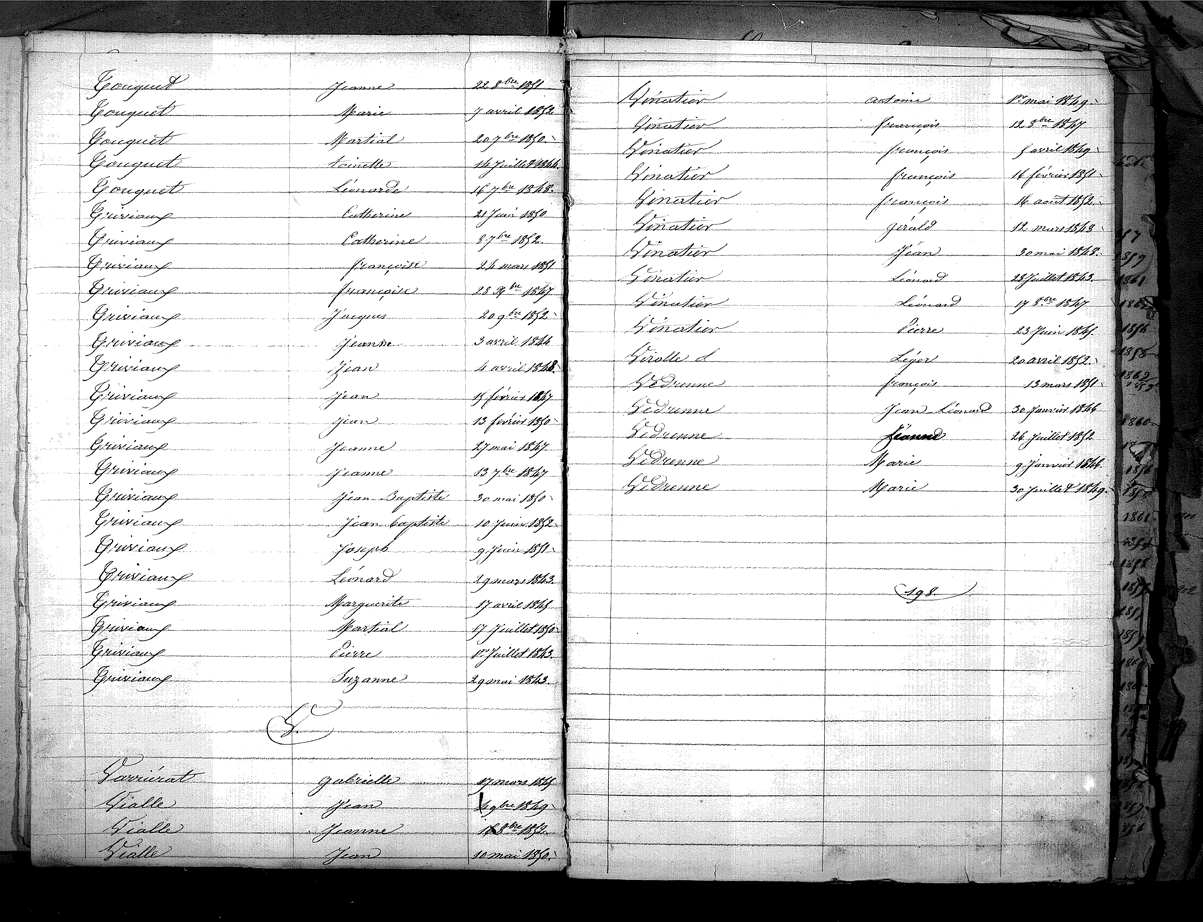 Touquet Jeanne 22 8bre 1851
Touquet Marie 7 avril 1852
Touquet Martial 20 7bre 1850
Touquet toinette 14 Juillet 1844
Touquet Léonarde 16 7bre 1848
Triviaux Catherine 21 Juin 1850
Triviaux Catherine 8 7bre 1852
Triviaux françoise 24 mars 1851
Triviaux françoise 28 bre 1847
Triviaux Jacques 20 9bre 1852
Triviaux Jeanne 3 avril 1844
Triviaux Jean 4 avril 1848
Triviaux Jean 15 février 1847
Triviaux Jean 13 février 1850
Triviaux Jeanne 27 mai 1847
Triviaux Jeanne 13 7bre 1847
Triviaux Jean-Baptiste 30 mai 1850
Triviaux Jean baptiste 10 Juin 1852
Triviaux Joseph 9 Juin 1851
Triviaux Léonard 29 mars 1843
Triviaux Marguerite 17 avril 1845
Triviaux Martial 17 Juillet 1850
Triviaux Pierre 1er Juillet 1843
Triviaux Suzanne 29 mai 1843
V.
Varriérat gabrielle 17 mars 1845
Vialle Jean 9bre 1849
Vialle Jeanne 8bre 1852
Vialle Jean 10 mai 1850
Vinatier antoine 1er mai 1849
Vinatier françois 12 8bre 1847
Vinatier françois 5 avril 1849
Vinatier françois 16 février 1851
Vinatier françois 16 août 1852
Vinatier gérald 12 mars 1843
Vinatier Jean 30 mai 1848
Vinatier Léonard 28 Juillet 1843
Vinatier Léonard 17 8bre 1847
Vinatier Pierre 23 Juin 1845
Virolle d Léger 20 avril 1852
Védrenne françois 13 mars 1851
Védrenne Jean-Léonard 30 Janvier 1844
Védrenne 26 Juillet 1852
Védrenne Marie 9 Janvier 1844
Védrenne Marie 30 Juillet 1849
198.